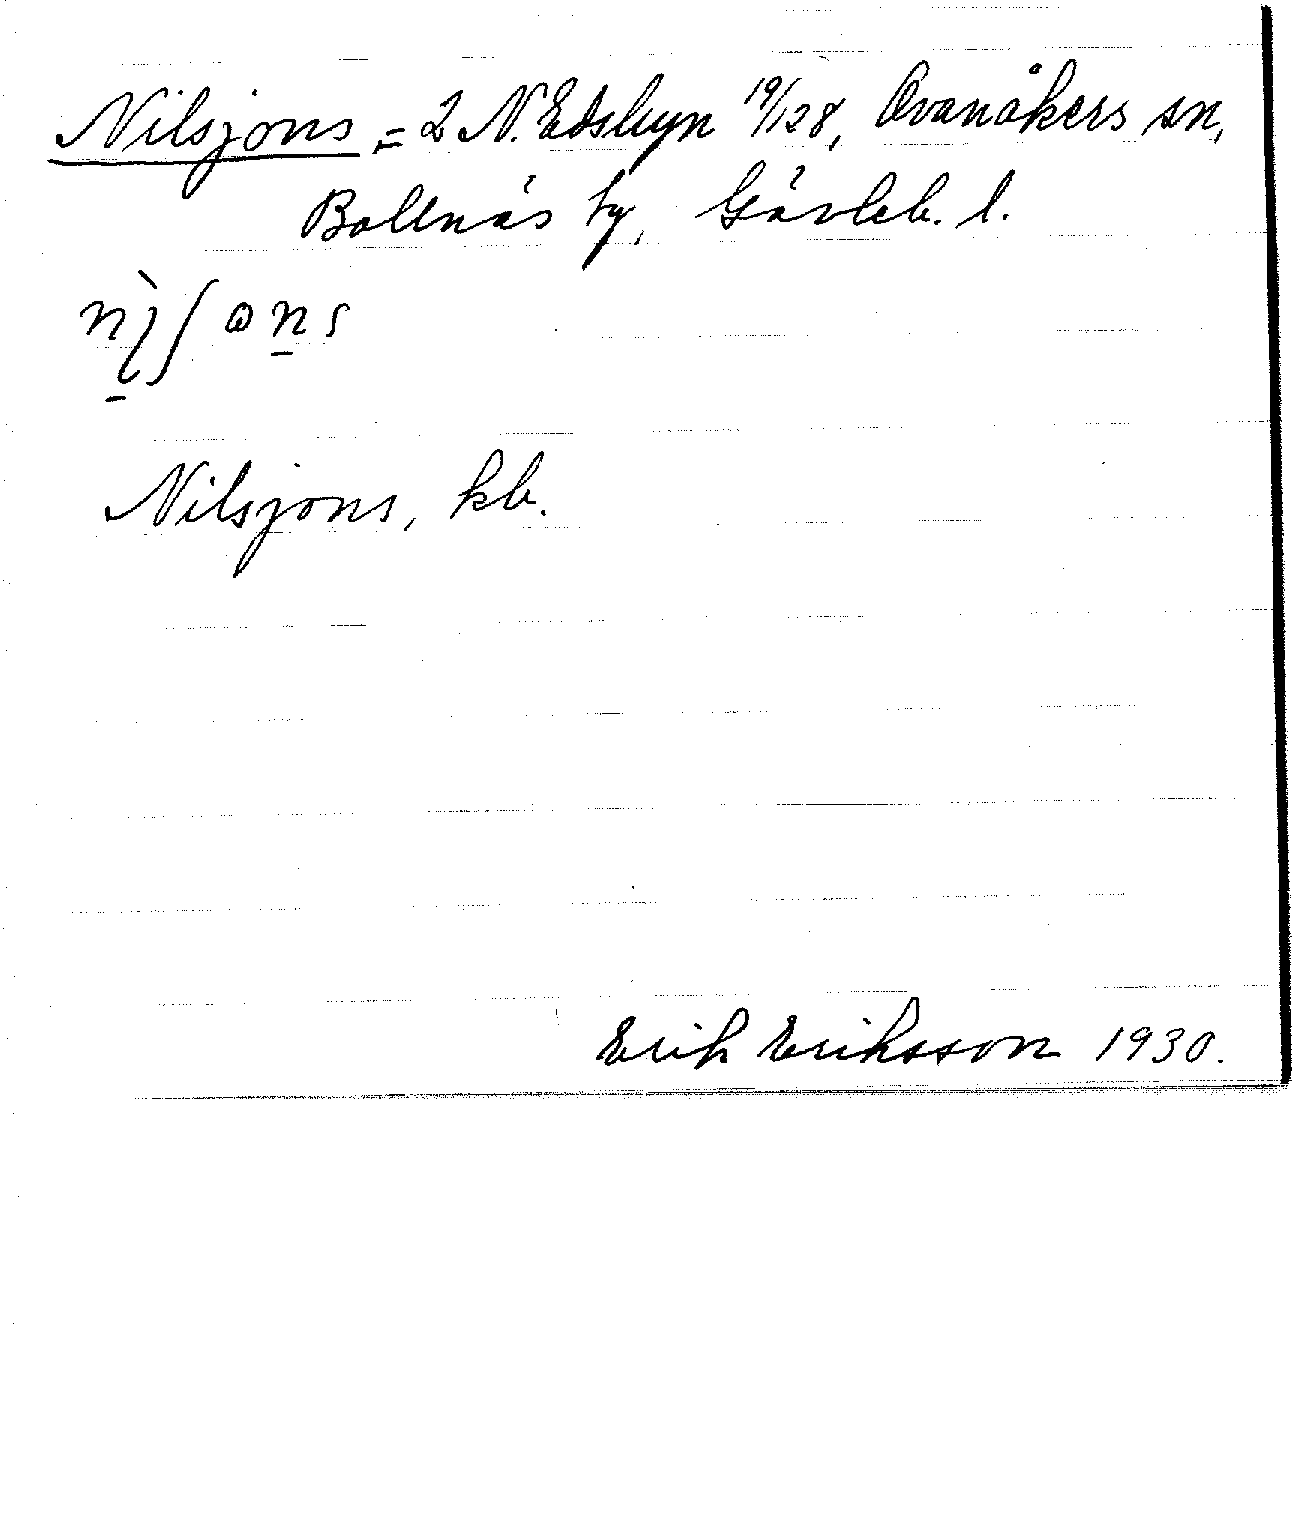 Nilsjons = 2 N. Edsbyn 19/128, Ovanåkers sn,
Bollnäs tg, Gävleb. l.
Nilsjons, kb.
Erik Eriksson 1930.